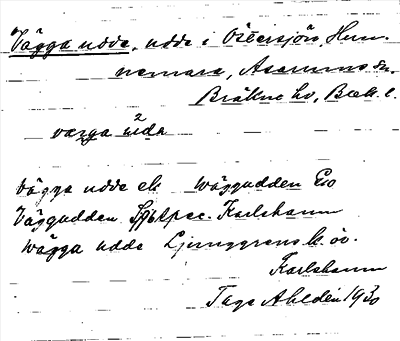 Vägga udde, udde i Östersjön, Hun-
nemara, Asarums sn.
Bräkne hd, Blek. l.
vægga ²udə
Vägga udde ek Wäggudden Eco
Väggudden Spec. Karlshamn
Wägga udde Ljunggrens k. öv.
Karlshamn
Tage Ahldén 1930